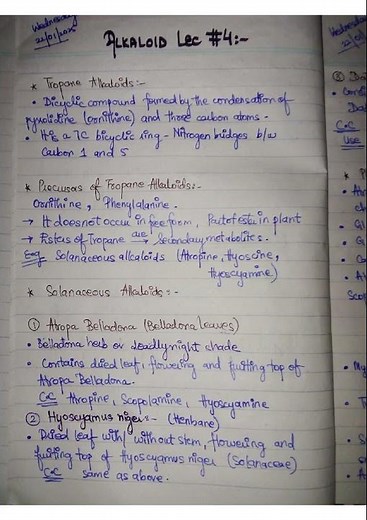 Wednesday
22/01/2025
ALKALOID Lec #4:-
* Tropane Alkaloids:-
• Dicyclic compound formed by the condensation of
pyrolidine (ornithine) and three carbon atoms.
• It is a 7C bicyclic ring - Nitrogen bridges b/w
Carbon 1 and 5
* Precursors of Tropane Alkaloids:-
Ornithine, Phenylalanine.
→ It does not occur in free form, Part of ester in plant
→ Esters of Tropane are → Secondary metabolites.
Eg Solanaceous alkaloids (Atropine, Hyoscine,
Hyoscyamine)
* Solanaceous Alkaloids:-
① Atropa Belladona (Belladona leaves)
• Belladona herb or deadly night shade
• Contains dried leaf, flowering and fruiting top of
Atropa Belladona.
C.C Atropine, Scopolamine, Hyoscyamine
② Hyoscyamus niger:- (Henbane)
• Dried leaf with/without stem, flowering and
fruiting top of Hyoscyamus niger (Solanaceae)
C.C same as above.
Wednesday
22/01
C.C
Use